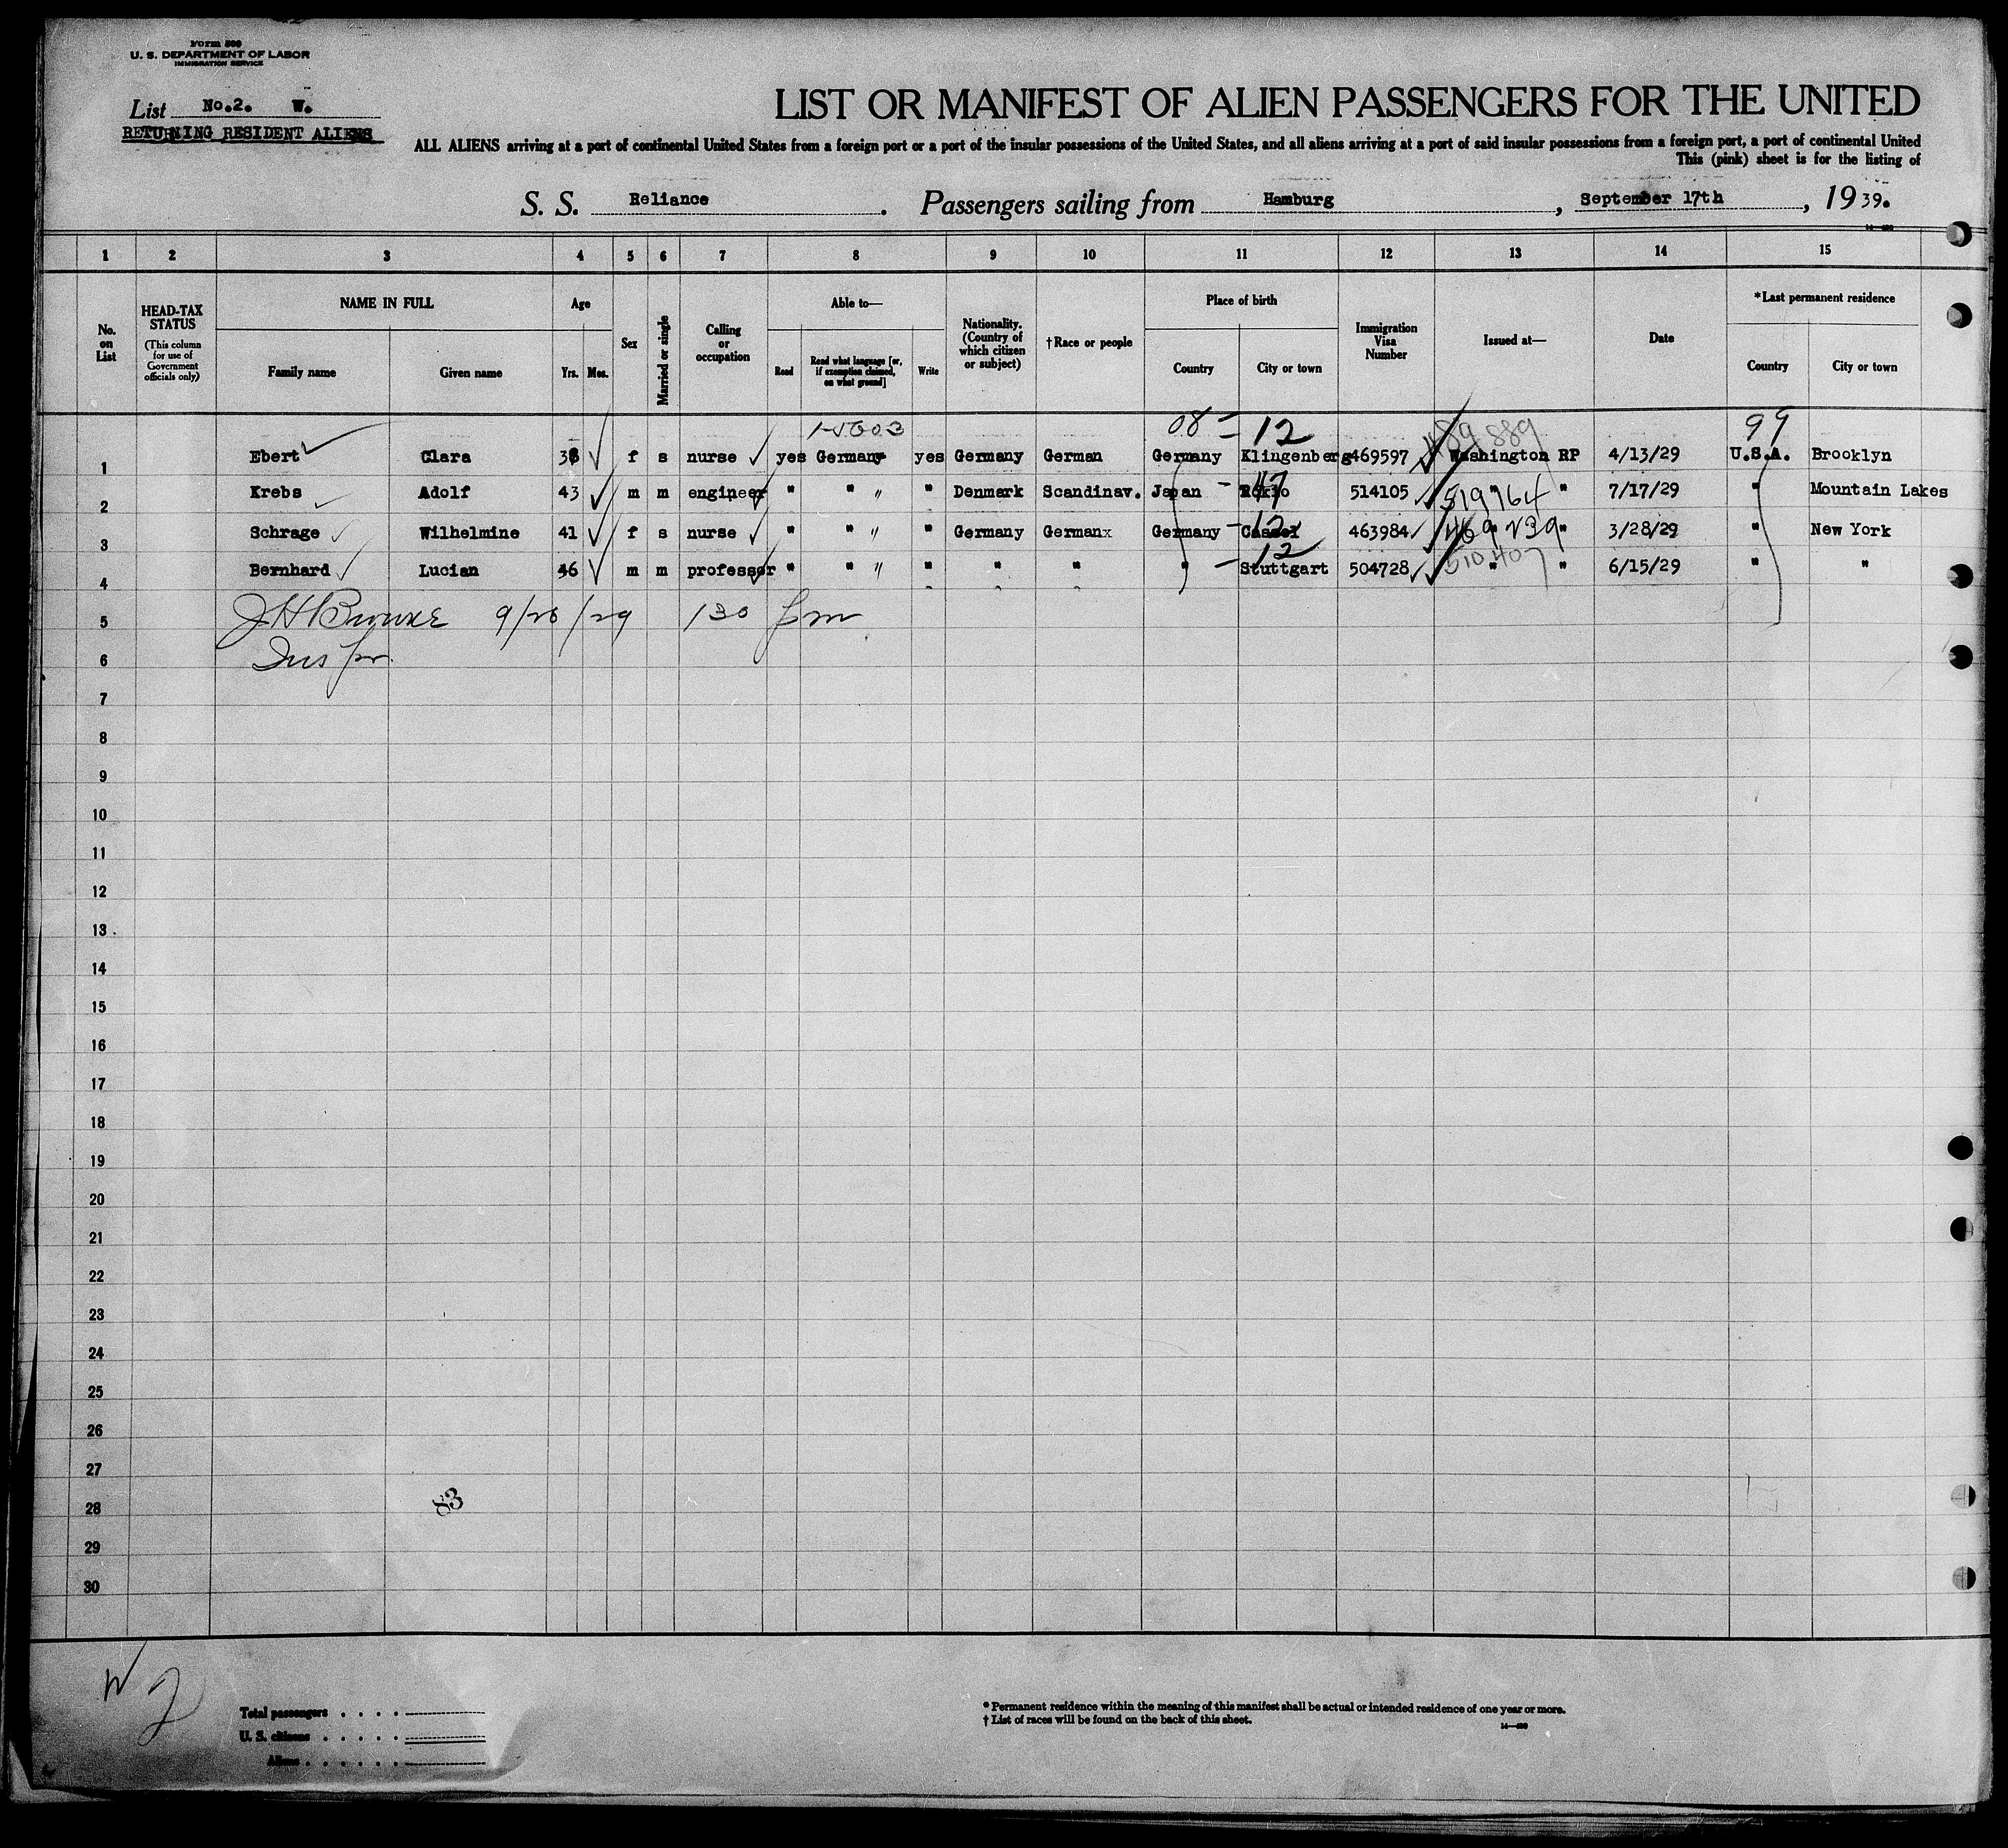 Form 500
U. S. DEPARTMENT OF LABOR
IMMIGRATION SERVICE
List No.2. W.
RETURNING RESIDENT ALIENS
LIST OR MANIFEST OF ALIEN PASSENGERS FOR THE UNITED
ALL ALIENS arriving at a port of continental United States from a foreign port or a port of the insular possessions of the United States, and all aliens arriving at a port of said insular possessions from a foreign port, a port of continental United
This (pink) sheet is for the listing of
S. S. Reliance. Passengers sailing from Hamburg, September 17th, 1939.
1 2 3 4 5 6 7 8 9 10 11 12 13 14 15
No. on List
HEAD-TAX STATUS (This column for use of Government officials only)
NAME IN FULL Family name Given name
Age Yrs. Mos.
Sex
Married or single
Calling or occupation
Able to— Read Read what language [or, if exemption claimed, on what ground] Write
Nationality. (Country of which citizen or subject)
†Race or people
Place of birth Country City or town
Immigration Visa Number
Issued at—
Date
*Last permanent residence Country City or town
08 = 12 99
1 Ebert Clara 38 f s nurse yes German yes Germany German Germany Klingenberg 469597 Washington RP 4/13/29 U.S.A. Brooklyn
2 Krebs Adolf 43 m m engineer " " " " Denmark Scandinav. Japan - 47 Tokio 514105 519764 " " 7/17/29 " Mountain Lakes
3 Schrage Wilhelmine 41 f s nurse " " " " Germany German Germany - 12 Cassel 463984 469239 " " 3/28/29 " New York
4 Bernhard Lucian 46 m m professor " " " " " " " - 12 Stuttgart 504728 510407 " " 6/15/29 " "
5 9/28/29 130 pm
6 Inspr.
7
8
9
10
11
12
13
14
15
16
17
18
19
20
21
22
23
24
25
26
27
28 83
29
30
Total passengers . . . .
U. S. citizens . . . . .
Aliens . . . . . .
* Permanent residence within the meaning of this manifest shall be actual or intended residence of one year or more.
† List of races will be found on the back of this sheet.